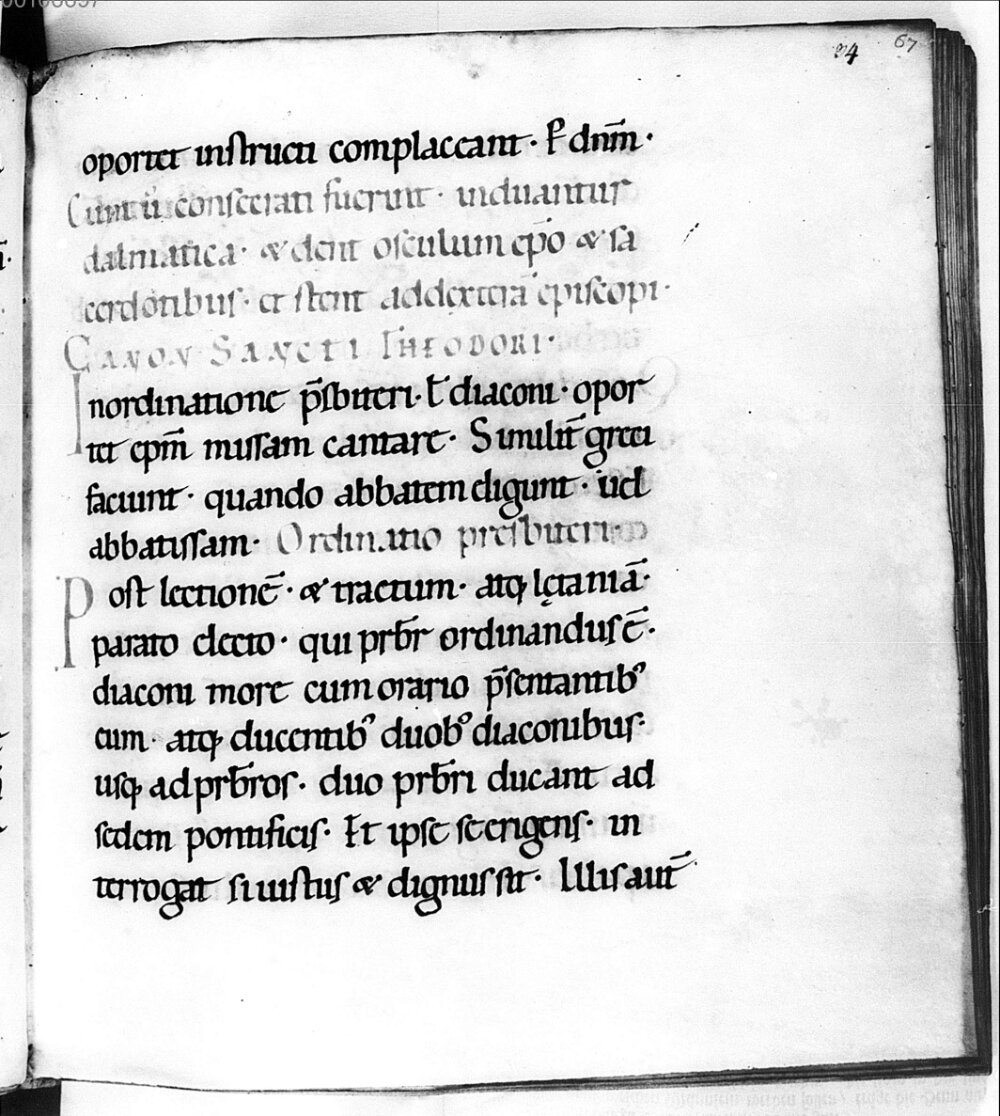 67
oportet instructi complaceant · P̄ dn̄m ·
Cum ū consecrati fuerint · induantur
dalmatica · & dent osculum ep̄o & sa
cerdotibus · et stent addexterā episcopi ·
CANON SANCTI THEODORI ·
Inordinatione p̄sbiteri · ł diaconi · opor
tet ep̄m missam cantare · Similit̄ greci
faciunt · quando abbatem eligunt · uel
abbatissam · Ordinatio presbiteri
Post lectionē · & tractum · atq; lętaniā ·
parato electo · qui prb̄r ordinandus ē ·
diaconi more cum orario p̄sentantib;
eum · atq; ducentib; duob; diaconibus ·
usq; ad prb̄ros · duo prb̄ri ducant ad
sedem pontificis · Et ipse se erigens · in
terrogat si iustus & dignus sit · Illis aut̄